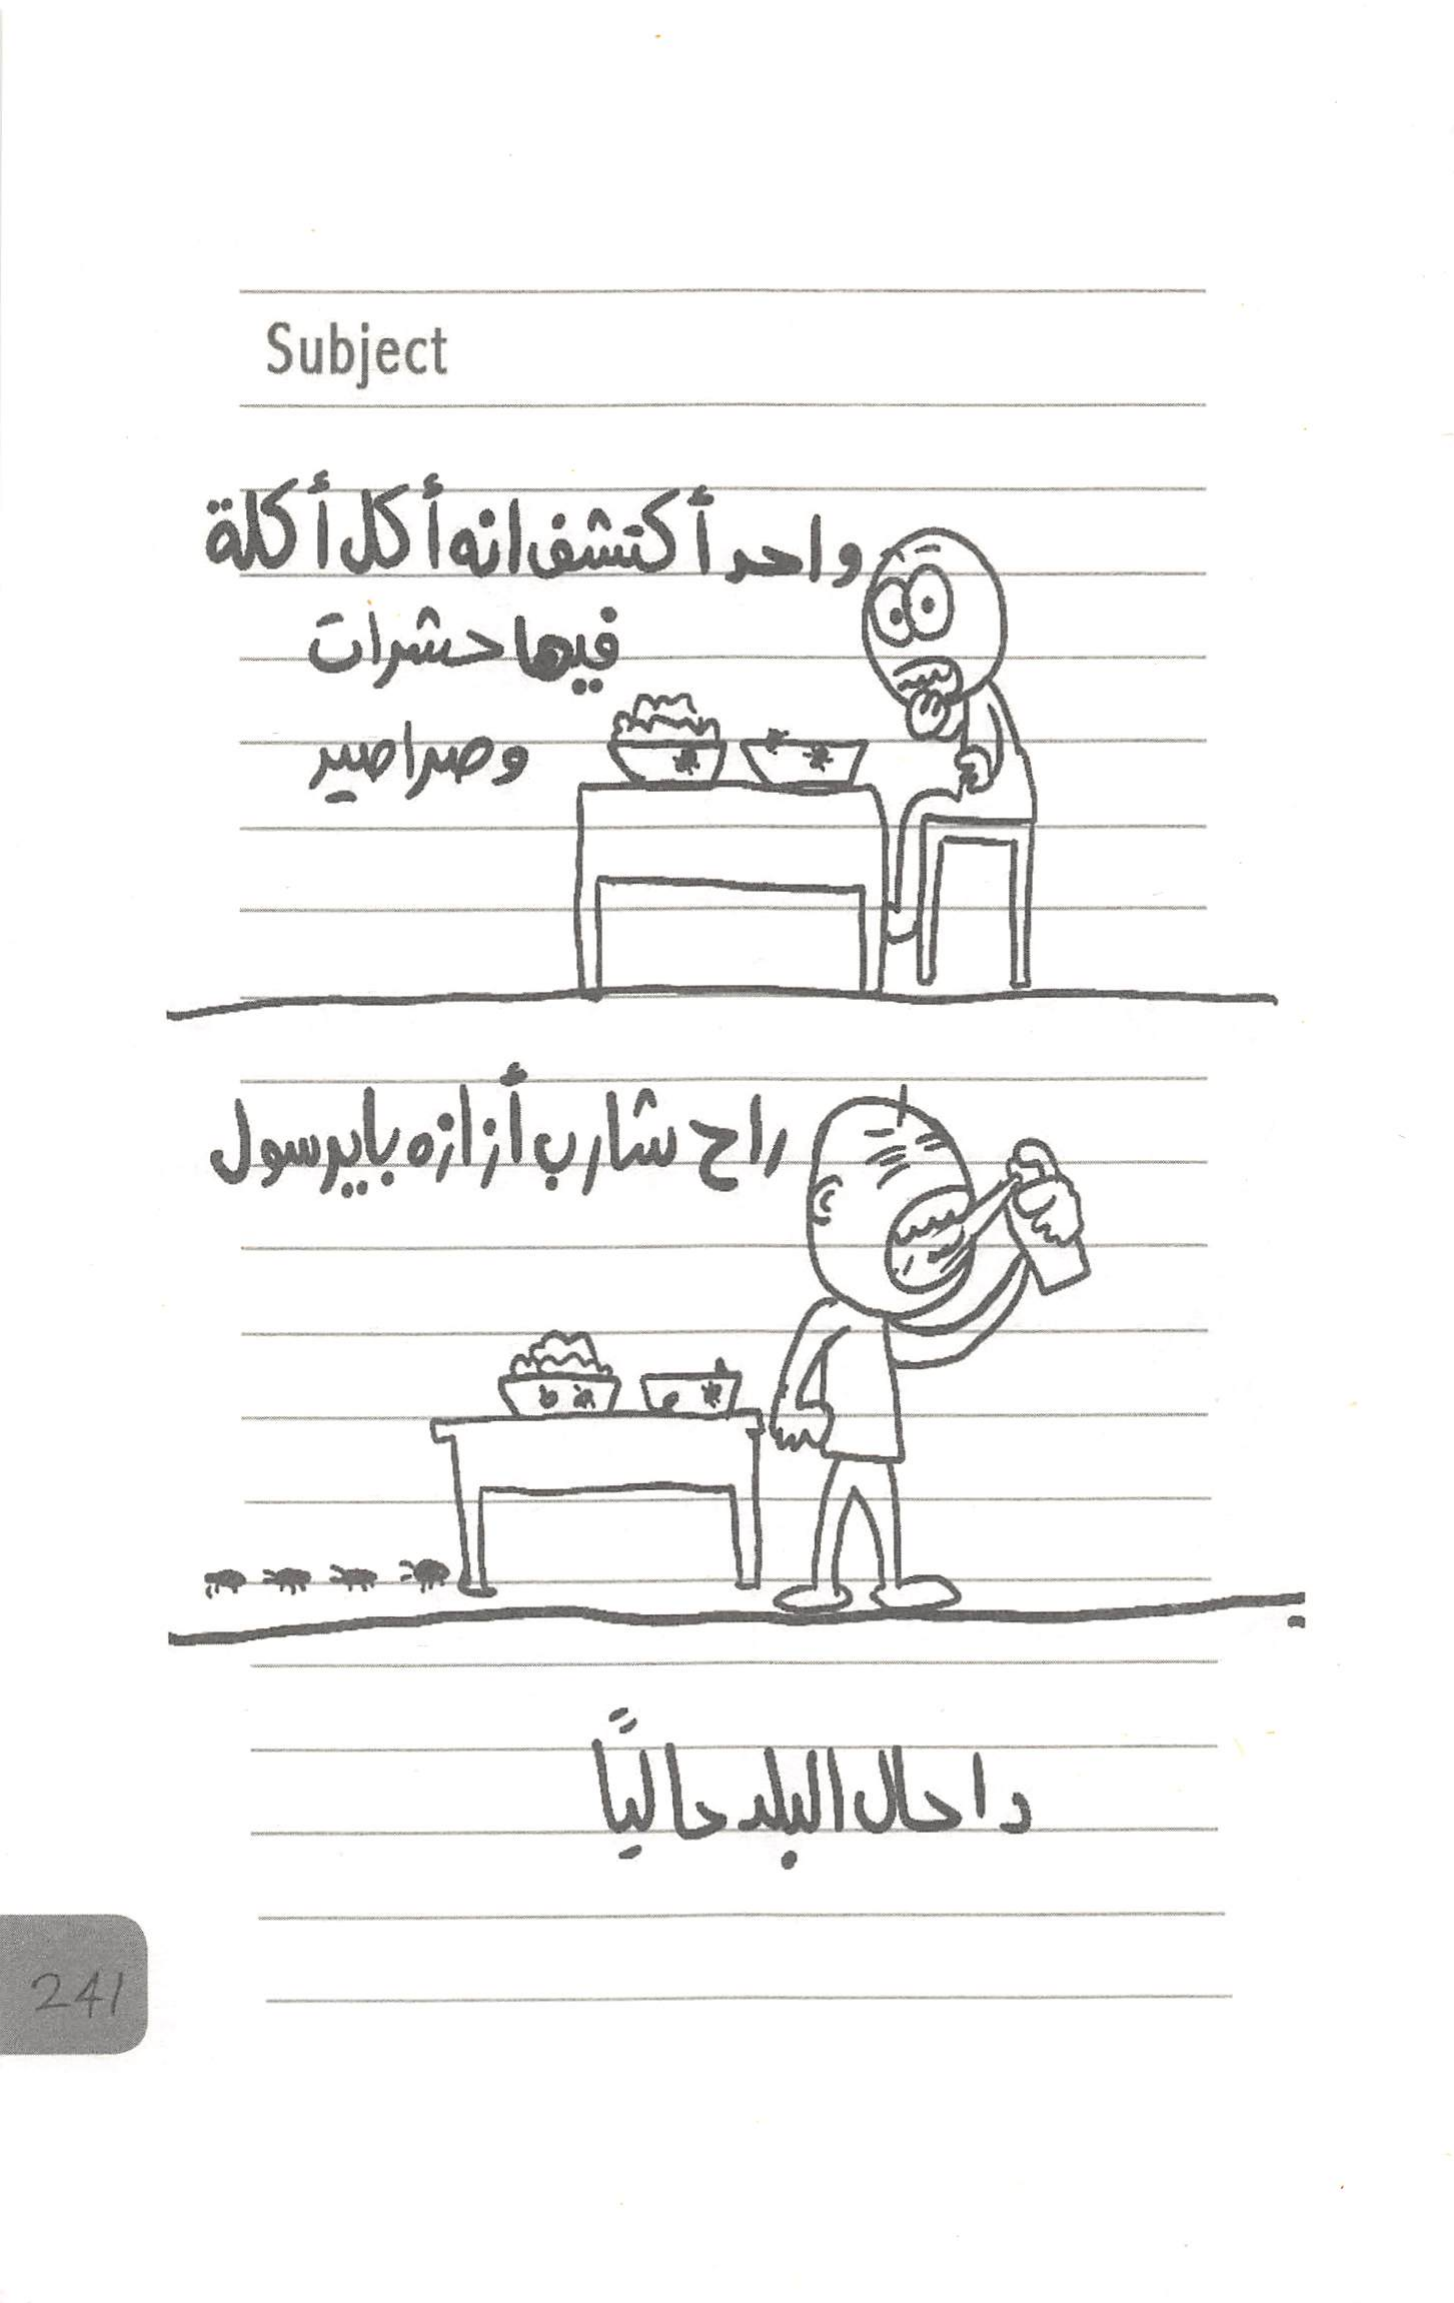 Subject
واحد أكتشف انه أكل أكلة
فيها حشرات
وصراصير
راح شارب أزازه بايرسول
دا حال البلد حاليًا
241